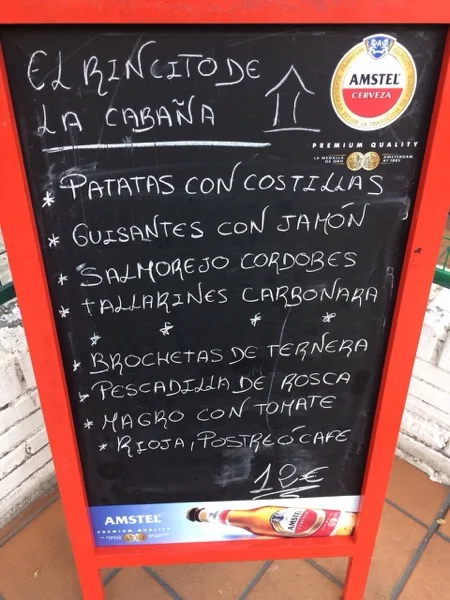 EL RINCITO DE
LA CABAÑA
AMSTEL
CERVEZA
PREMIUM QUALITY
LA MEDALLA DE ORO
AMSTERDAM AF 1883
* PATATAS CON COSTILLAS
* GUISANTES CON JAMÓN
* SALMOREJO CORDOBES
* TALLARINES CARBONARA
* * * *
* BROCHETAS DE TERNERA
* PESCADILLA DE ROSCA
* MAGRO CON TOMATE
* RIOJA, POSTRE Ó CAFE
12€
AMSTEL
PREMIUM QUALITY
AMSTEL